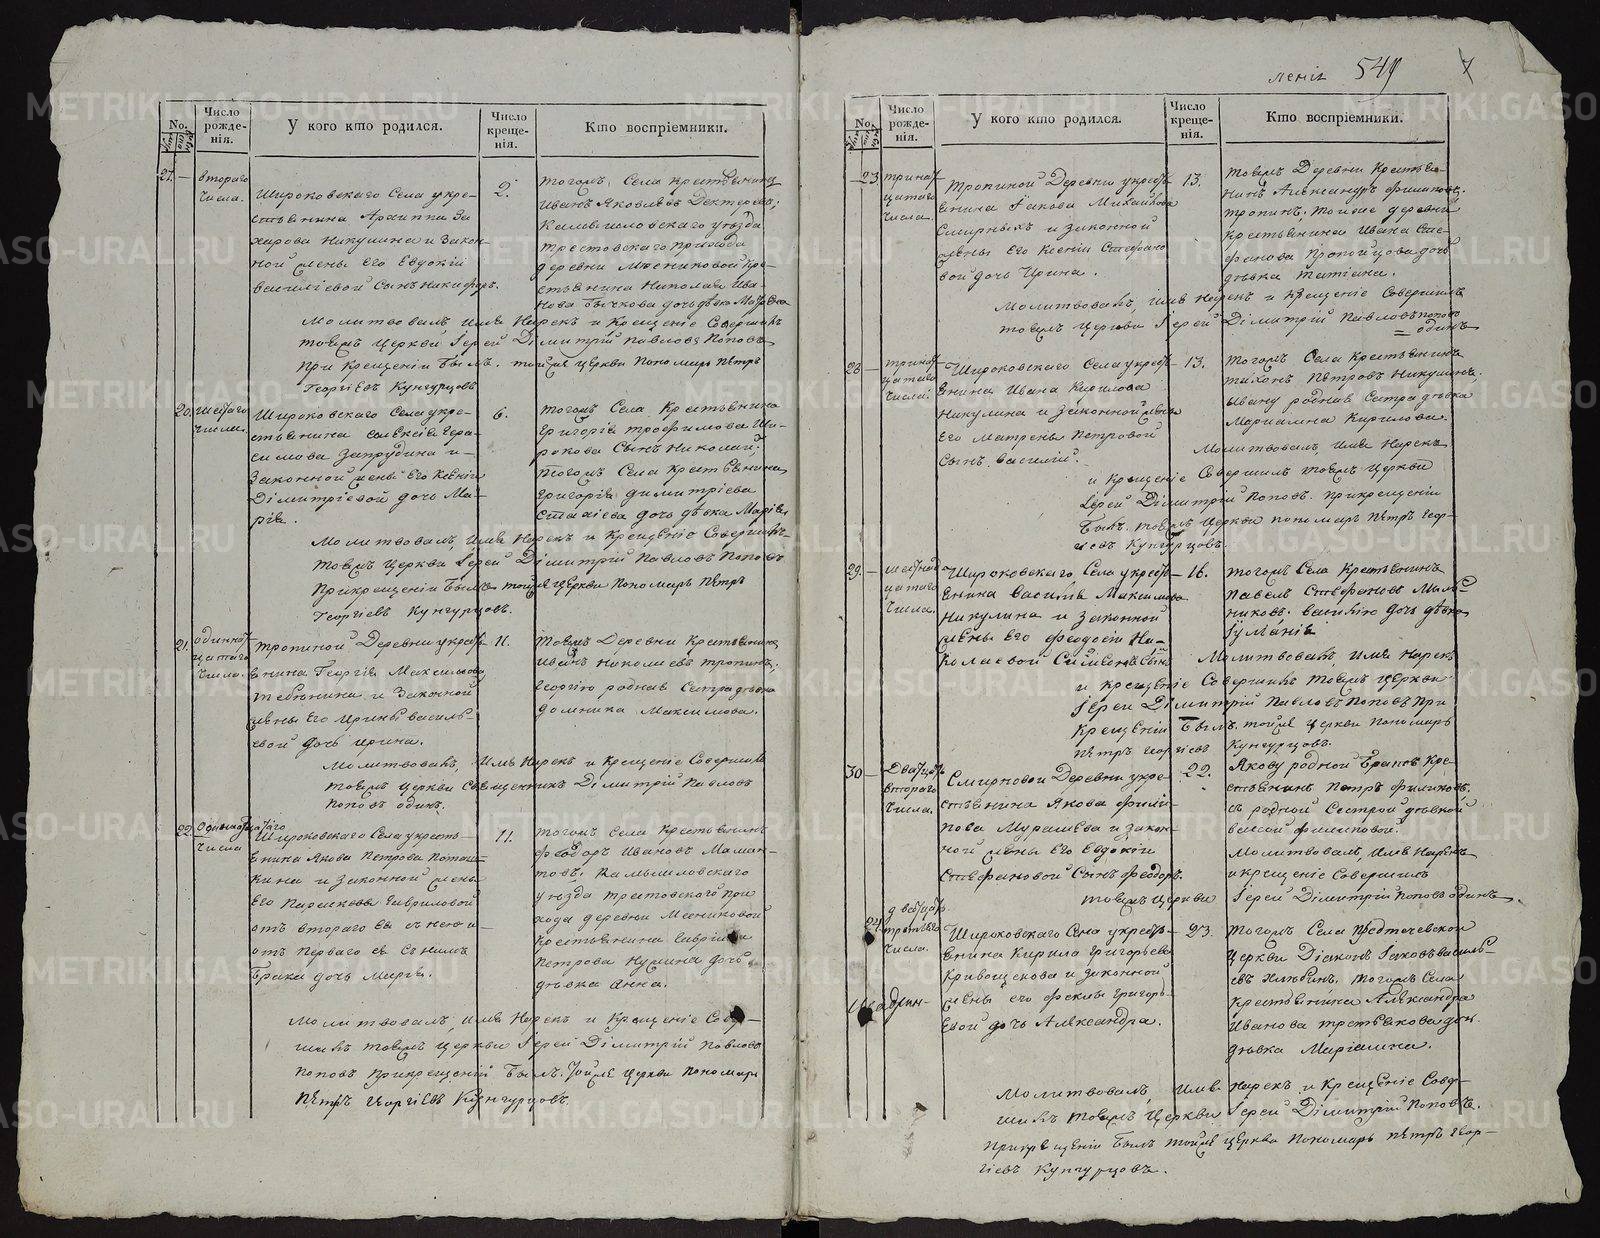 No.
Число рожде-
нія.
У кого кто родился.
Число креще-
нія.
Кто воспріемники.
27.
втораго
числа.
Широковскаго Села укре-
стьянина Архиппа За
харова Никулина и закон-
ной жены его Евдокіи
василіевой сынъ никифоръ.
2.
тогожъ Села крестьянинъ
Иванъ Яковлевъ Дектеревъ;
Камышловскаго уѣзда
деревни Мѣсниковой кре-
стьянина Николая Ива-
нова Бычкова дочь дѣвка
Молитвовалъ, имя Нарекъ и Крещеніе Совершилъ
тоежъ церкви Іерей Димитрій Павловъ Поповъ
при крещеніи былъ. тойже церкви Пономарь Петръ
Георгіевъ Кунгурцовъ
20.
шестаго
числа.
Широковскаго Села укре-
стьянина Алексія Гера-
симова Запрудина и
Законной жены его Ксеніи
Димитріевой дочь Ма-
рія.
6.
тогожъ Села Крестьянина
Григорія трофимова Ши-
рокова Сынъ Николай.
тогожъ Села крестьянина
Григорія димитріева
дочь дѣвка Марія.
Молитвовалъ, имя Нарекъ и Крещеніе Совершилъ
тоежъ Церкви Іерей Димитрій Павловъ Поповъ
Прикрещеніи Былъ тойже церкви Пономарь Петръ
Георгіевъ Кунгурцовъ.
21.
одиннат
цатаго
числа.
тропиной Деревни укресть
янина Георгія Максимова
и Законной
жены его Ирины василь-
евой дочь ирина.
11.
тоежъ Деревни Крестьянинъ
иванъ николаевъ тропинъ;
Георгію родная Сестра дѣвка
домника Максимова.
Молитвовалъ, имя Нарекъ и Крещеніе Совершилъ
тоежъ церкви священникъ Димитрій Павловъ
Поповъ одинъ.
22.
одиннатцатаго
числа
Широковскаго Села укресть-
янина Якова Петрова Поташ-
кина и Законной жены
его Параскевы Гавриловой
отъ втораго ея съ нею и
отъ Перваго ея съ нимъ
брака дочь Марія.
11.
тогожъ Села Крестьянинъ
Феодоръ Ивановъ Маман-
товъ. Камышловскаго
уѣзда трестовскаго при
хода деревни Мѣсниковой
Крестьянина Гавріила
Петрова дочь
дѣвка Анна.
Молитвовалъ, имя Нарекъ и Крещеніе Совер-
шилъ тоежъ церкви Іерей Димитрій Павловъ
Поповъ Прикрещеніи Былъ. тойже церкви пономарь
Петръ Георгіевъ Кунгурцовъ.
549
7
No.
Число рожде-
нія.
У кого кто родился.
Число креще-
нія.
Кто воспріемники.
23.
тринат
цатаго
числа.
Тропиной Деревни укресть
янина Іакова Михайлова
Смирныхъ и Законной
жены его Ксеніи Стефано
вой дочь Ирина.
13.
тоежъ Деревни Крестья-
нинъ Александръ филиповъ
тропинъ. тойже деревни
крестьянина Ивана Сте-
фанова дочь
дѣвка татіана.
Молитвовалъ, имя Нарекъ и Крещеніе Совершилъ
тоежъ церкви Іерей Димитрій Павловъ поповъ
одинъ
28.
тринат
цатаго
числа.
Широковскаго Села укресть
янина Ивана Кирилова
Никулина и Законной жены
его Матрены Петровой
Сынъ василій.
13.
тогожъ Села Крестьянинъ
тихонъ Петровъ Никулинъ,
ивану родная Сестра дѣвка
Маріамна Кирилова.
Молитвовалъ, имя Нарекъ
и крещеніе Совершилъ тоежъ церкви
Іерей Димитрій Поповъ. Прикрещеніи
Былъ. тоежъ церкви пономарь петръ Геор-
гіевъ Кунгурцовъ.
29.
шестнат
цатаго
числа.
Широковскаго Села укресть
янина василія Максимова
Никулина и Законной
жены его Феодосіи Ни-
колаевой Симеонъ сынъ
16.
тогожъ Села Крестьянинъ
Павелъ Стефановъ Мыль-
никовъ. василію дочь дѣвка
Іуліанія
Молитвовалъ, имя Нарекъ
и крещеніе Совершилъ тоежъ церкви
Іерей Димитрій Павловъ Поповъ При
Крещеніи Былъ. тойже церкви Пономарь
Петръ Георгіевъ Кунгурцовъ.
30
Двадцать
втораго
числа.
Смирновой Деревни укре-
стьянина Якова фили-
пова Муршева и закон-
ной жены его Евдокіи
Стефановой Сынъ Феодоръ.
22.
Якову родной братъ Кре-
стьянинъ Петръ филиповъ.
съ родной Сестрой дѣвкой
филиповой.
Молитвовалъ, имя Нарекъ
и крещеніе Совершилъ
тоежъ церкви Іерей Димитрій Поповъ одинъ.
24.
двадцать
третьяго
числа.
Широковскаго Села укресть-
янина Кирила Григорьева
Кривощекова и законной
жены его феклы Григорь-
евой дочь Александра.
23.
тогожъ Села Предтечевской
церкви Діаконъ Іаковъ василь-
евъ Хлыбинъ. тогожъ Села
крестьянина Александра
Иванова третьякова дочь
дѣвка Маріамна.
Молитвовалъ, имя нарекъ и Крещеніе Совер-
шилъ тоежъ Церкви Іерей Димитрій Поповъ.
Прикрещеніи Былъ тойже церкви Пономарь петръ Геор-
гіевъ Кунгурцовъ.
METRIKI.GASO-URAL.RU